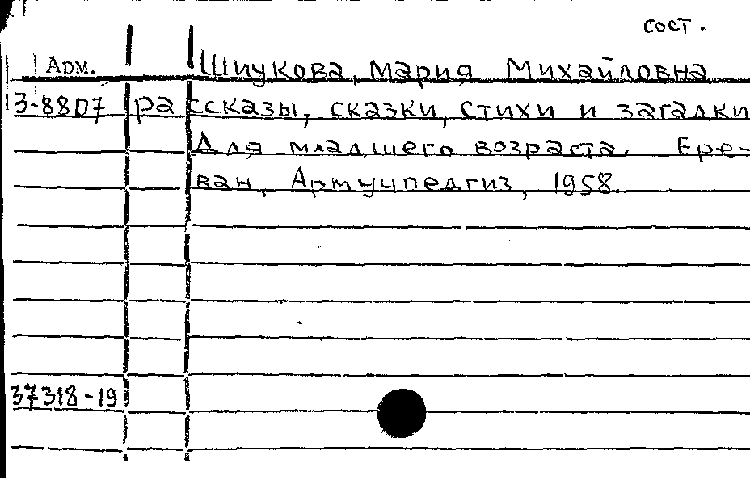 сост.
Адм. Шиукова, Мария Михайловна
3-8807 рассказы, сказки, стихи и загадки
Для младшего возраста. Ере-
ван, Армучпедгиз, 1958.
37318-19